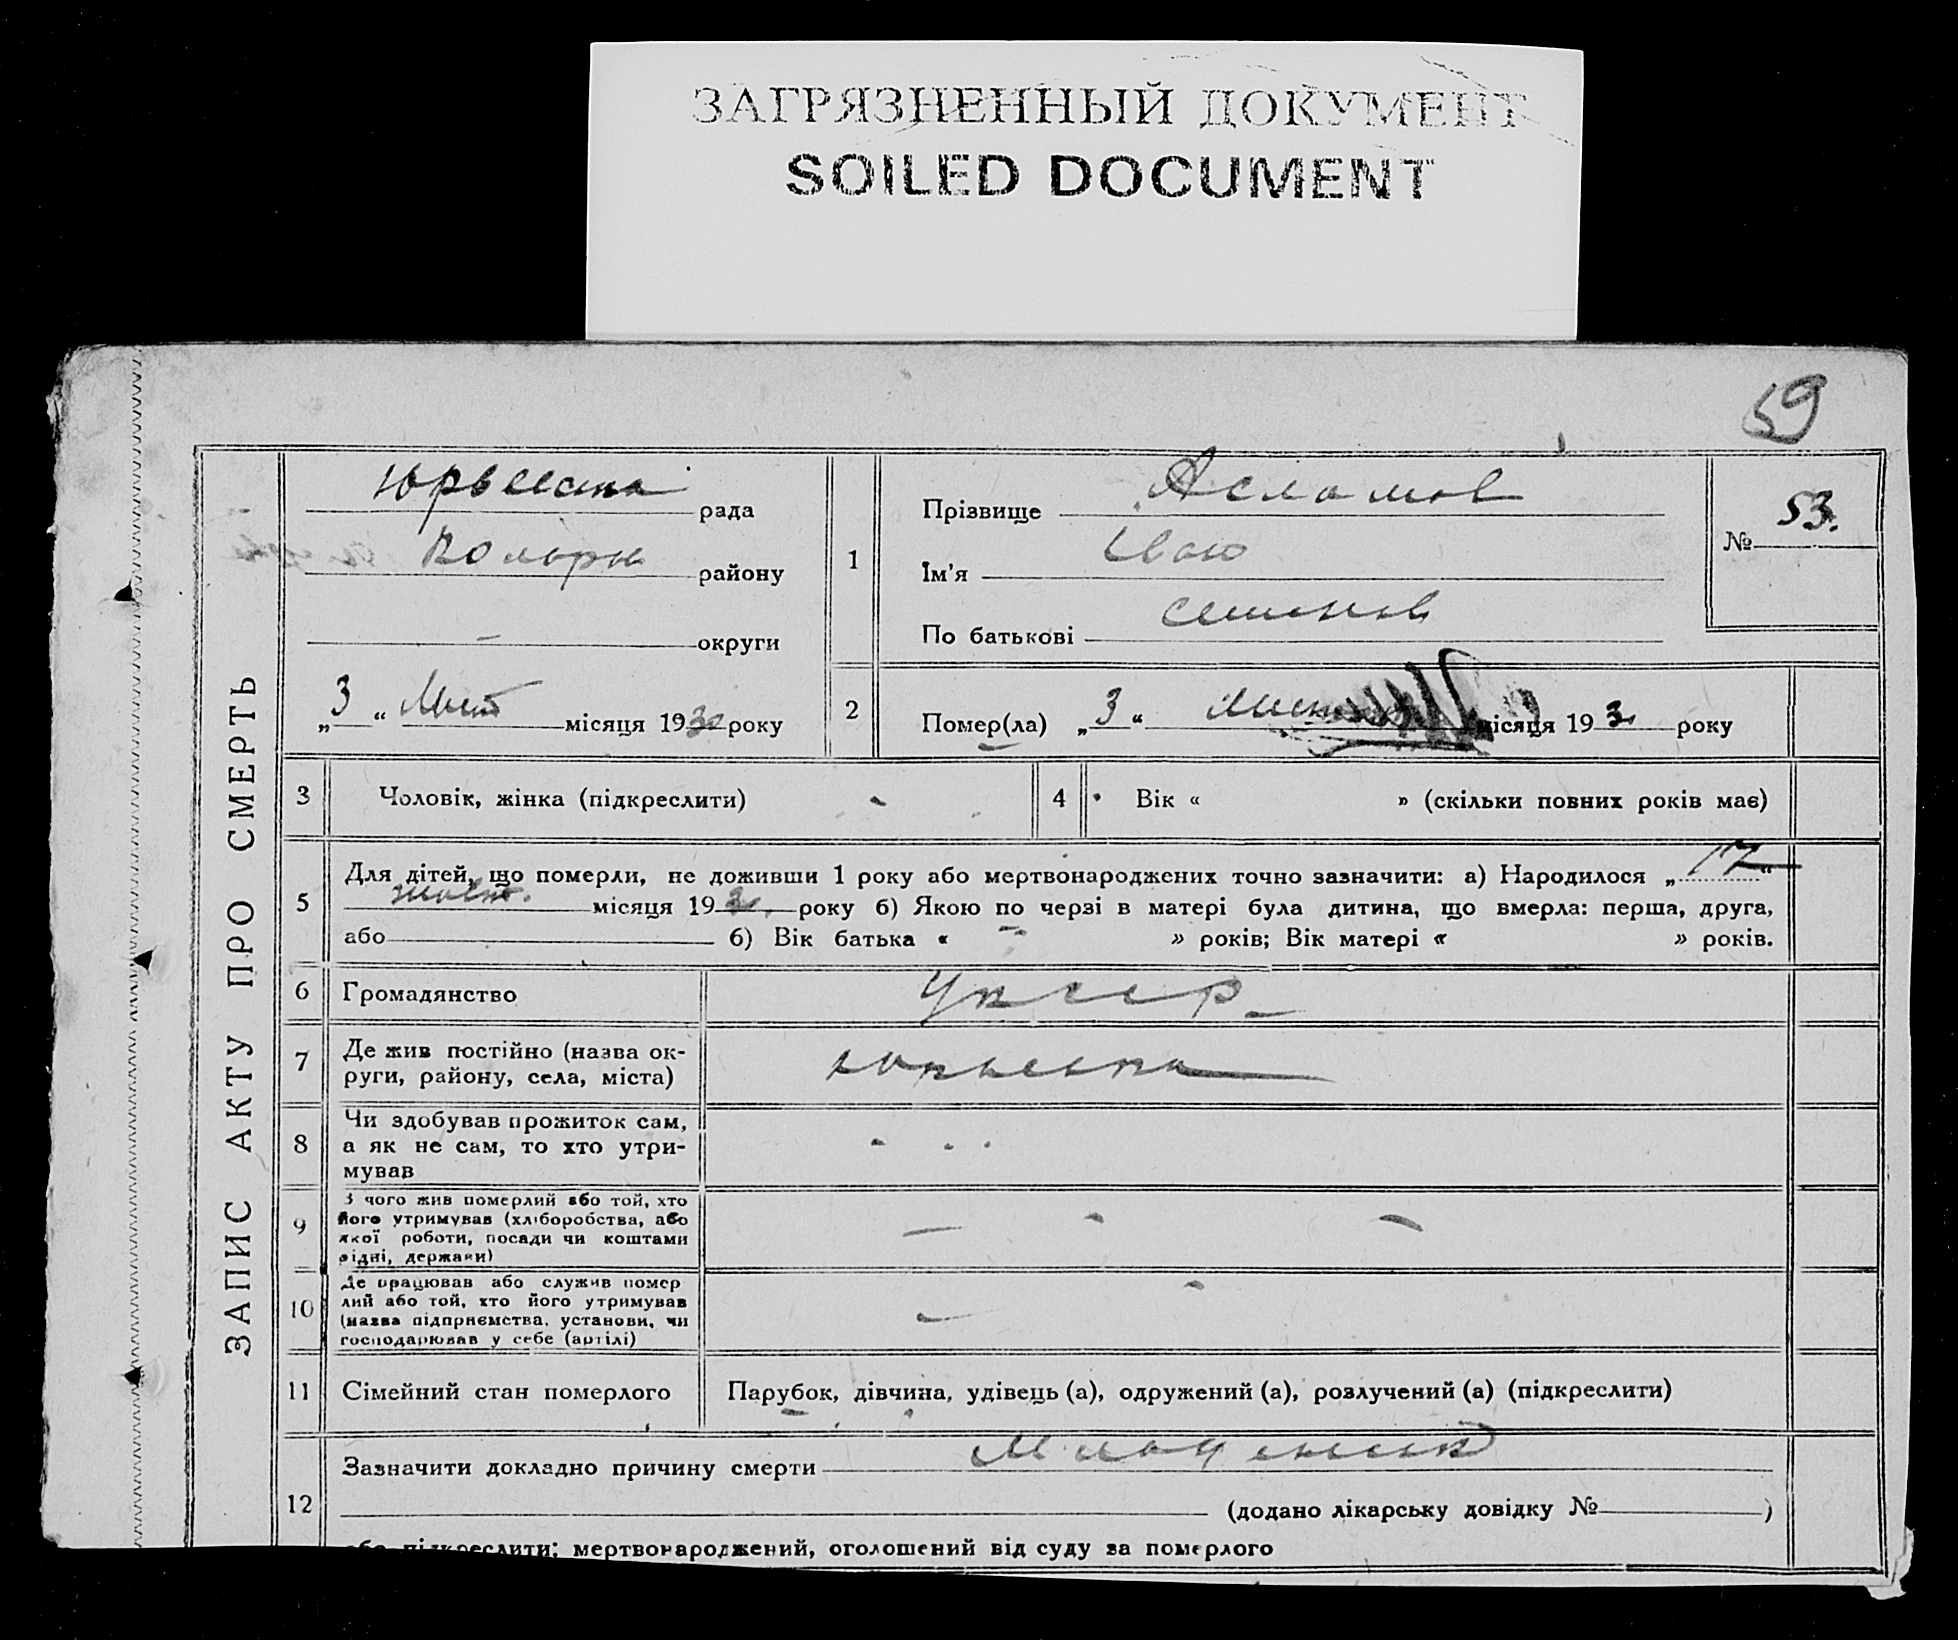 ЗАГРЯЗНЕННЫЙ ДОКУМЕНТ
SOILED DOCUMENT
59
ЗАПИС АКТУ ПРО СМЕРТЬ
рада
району
— округи
„3“ Лист місяця 1930 року
1
Прізвище Асламов
Ім'я Іван
По батькові
№ 53.
2
Помер(ла) „3“ місяця 193 року
3 Чоловік, жінка (підкреслити)
4 Вік « » (скільки повних років має)
5
Для дітей, що померли, не доживши 1 року або мертвонароджених точно зазначити: а) Народилося „17“
жовт. місяця 1930. року б) Якою по черзі в матері була дитина, що вмерла: перша, друга,
або 6) Вік батька « — » років; Вік матері « » років.
6 Громадянство УКССР
7
Де жив постійно (назва ок-
руги, району, села, міста)
8
Чи здобував прожиток сам,
а як не сам, то хто утри-
мував
9
З чого жив померлий або той, хто
його утримував (хліборобства, або
якої роботи, посади чи коштами
рідні, держави)
10
Де працював або служив помер
лий або той, хто його утримував
(назва підприємства, установи, чи
господарював у себе (артілі)
11 Сімейний стан померлого Парубок, дівчина, удівець (а), одружений (а), розлучений (а) (підкреслити)
12
Зазначити докладно причину смерти
(додано лікарську довідку № )
або підкреслити: мертвонароджений, оголошений від суду за померлого